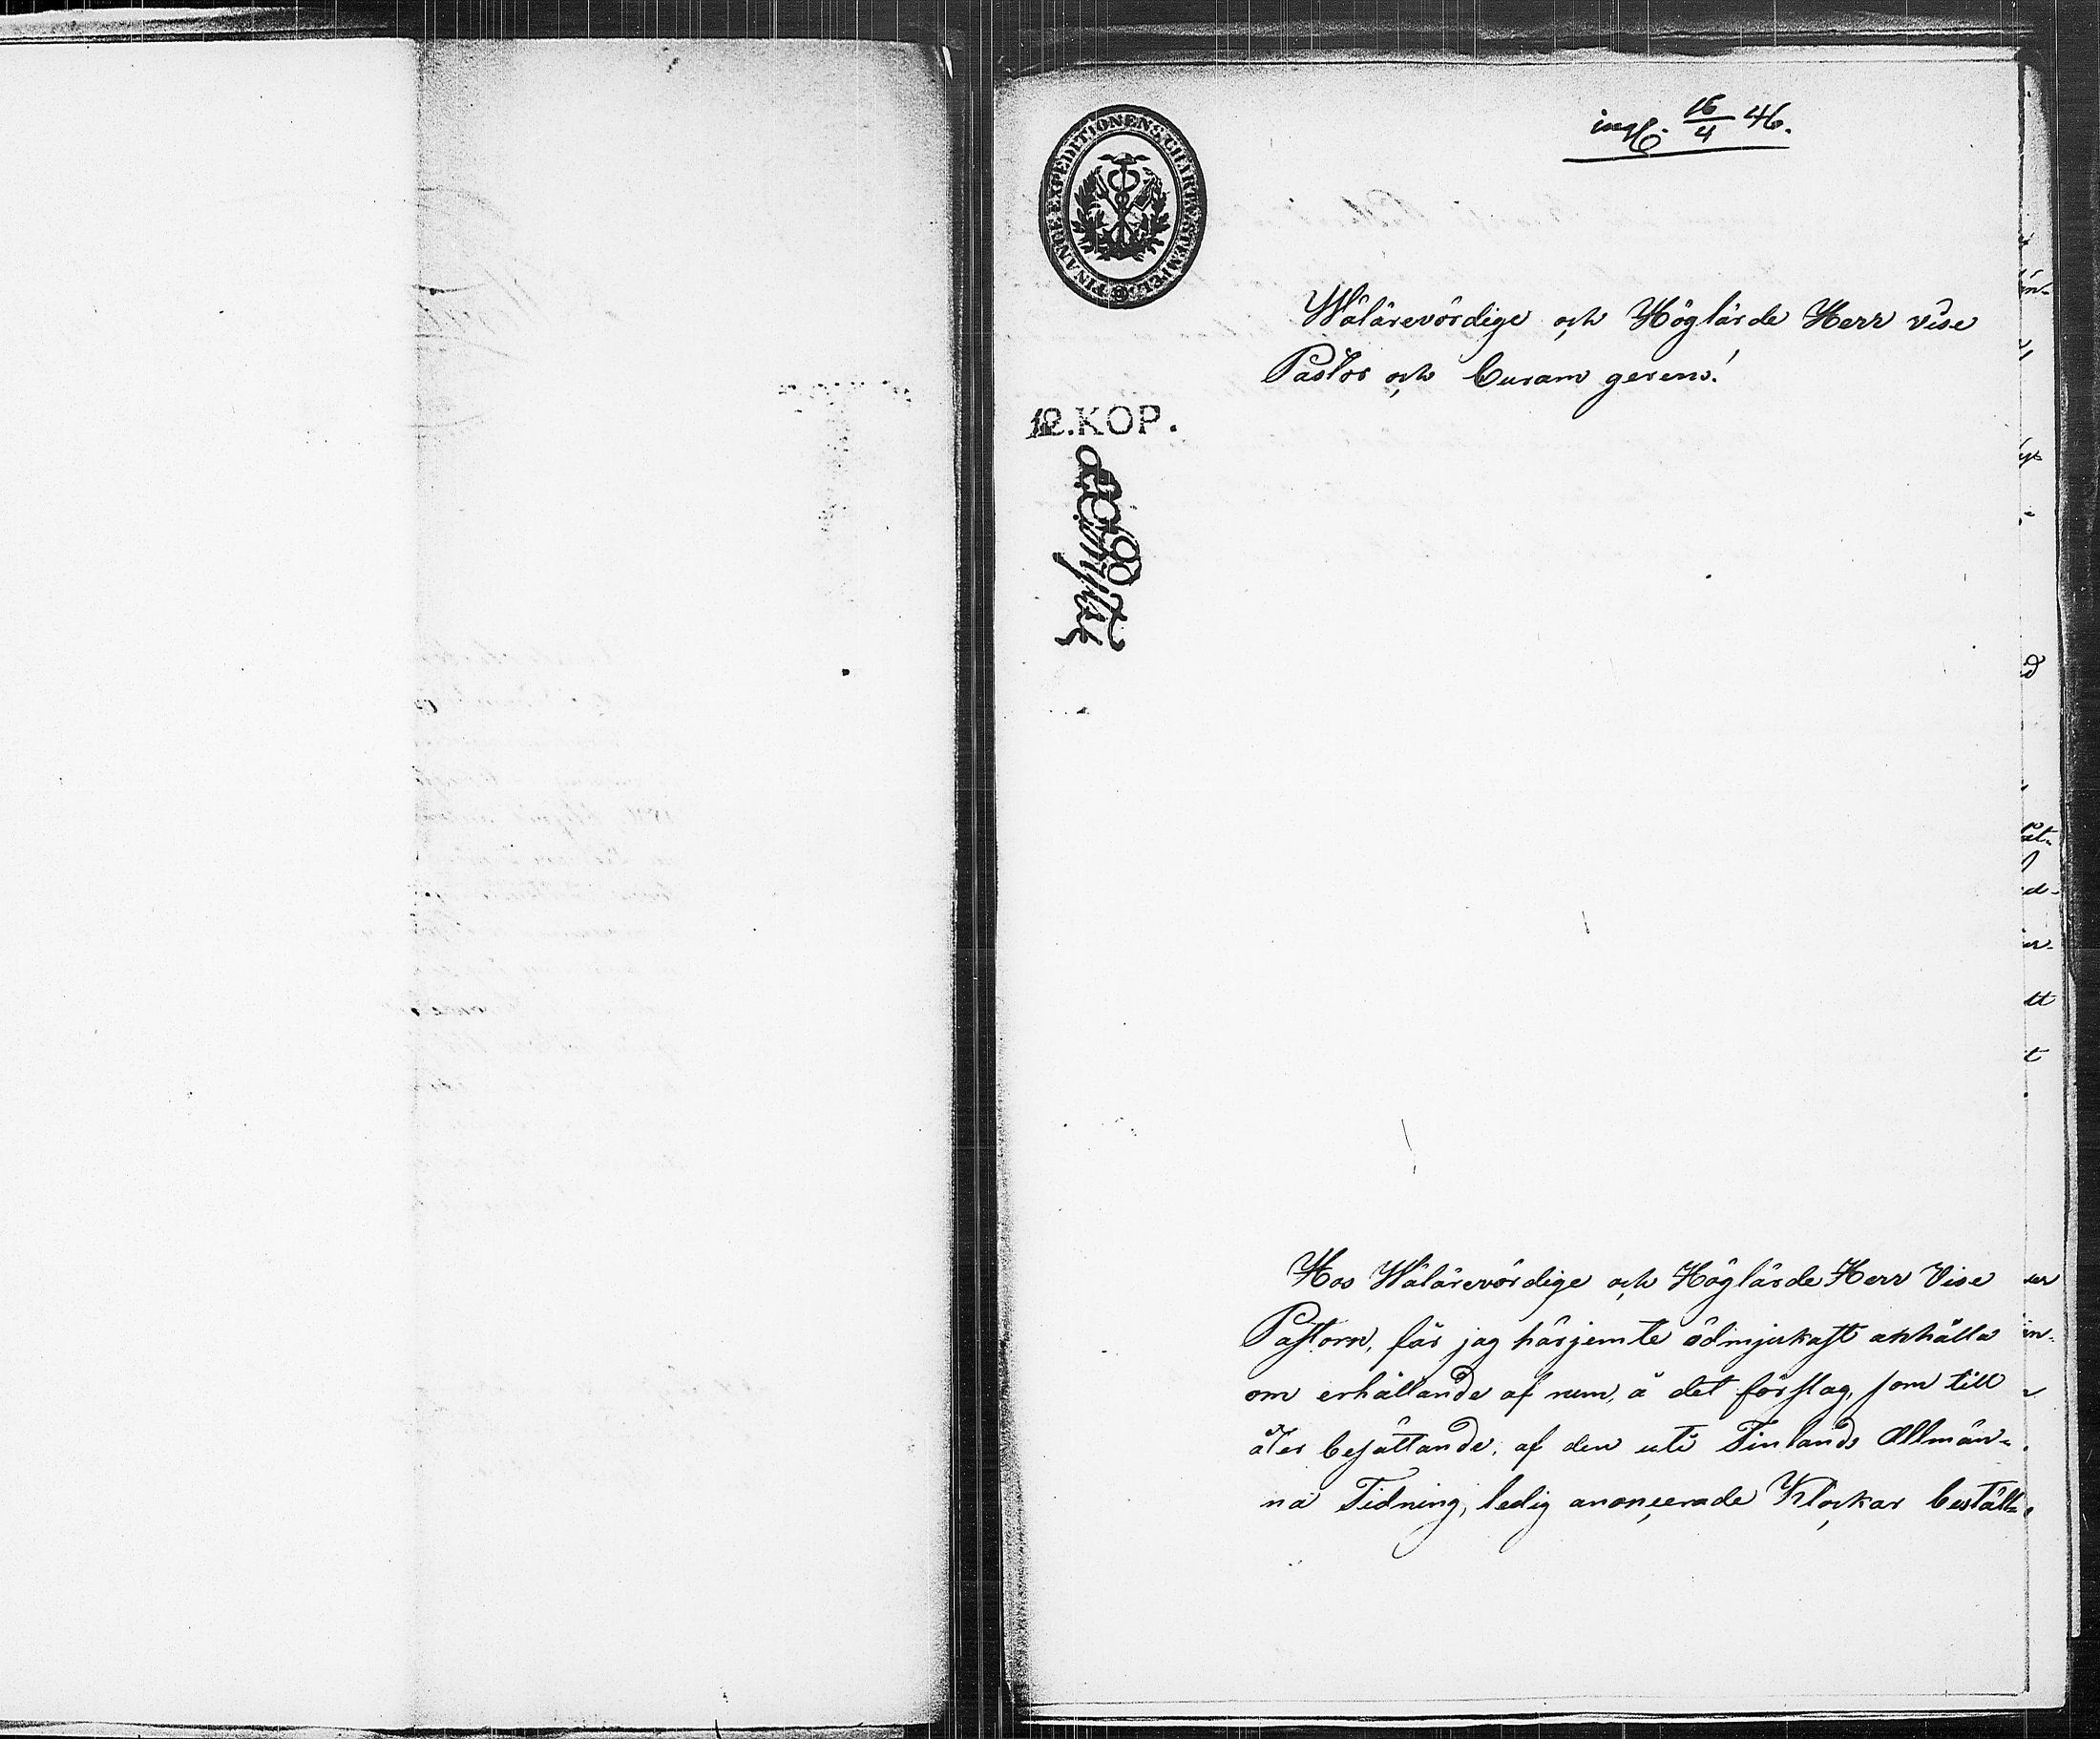 ingf. 16/4 46.
FINANCE EXPEDITIONENS CHARTÆ STEMPEL
Wälärevördige och Höglärde Herr vise
Pastor och Curam gerens!
12.KOP.
Hos Wälärevördige och Höglärde Herr Vise
Pastorn, får jag härjemte ödmjukast anhålla
om erhållande af rum, å det förslag, som till
åter besättande, af den uti Finlands Allmän-
na Tidning, ledig anoncerade Klockar beställ-